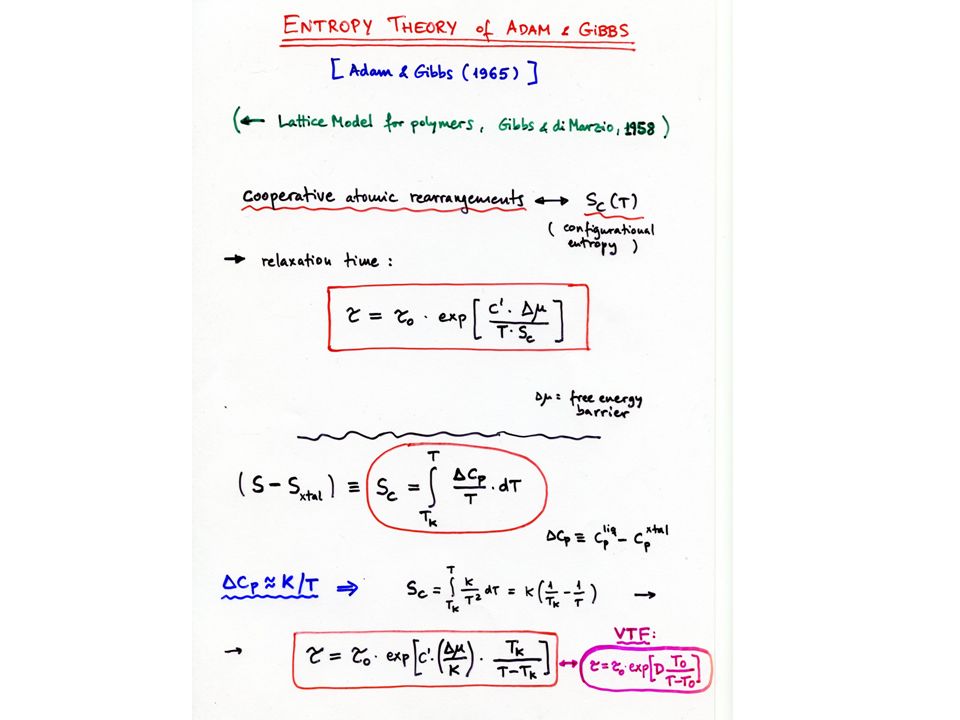 ENTROPY THEORY of ADAM & GIBBS
[Adam & Gibbs (1965)]
(← Lattice Model for polymers, Gibbs & di Marzio, 1958)
cooperative atomic rearrangements ↔ Sc(T)
(configurational
entropy)
→ relaxation time:
τ = τ₀ · exp[C'·Δμ / T·Sc]
Δμ = free energy
barrier
(S - Sxtal) ≡ Sc = ∫_{TK}^{T} ΔCp/T · dT
ΔCp ≡ Cp^liq - Cp^xtal
ΔCp ≈ K/T ⇒ Sc = ∫_{TK}^{T} K/T² dT = K(1/TK - 1/T) →
VTF:
→ τ = τ₀ · exp[C'·(Δμ/K) · TK/(T-TK)] ↔ τ = τ₀·exp[D T₀/(T-T₀)]